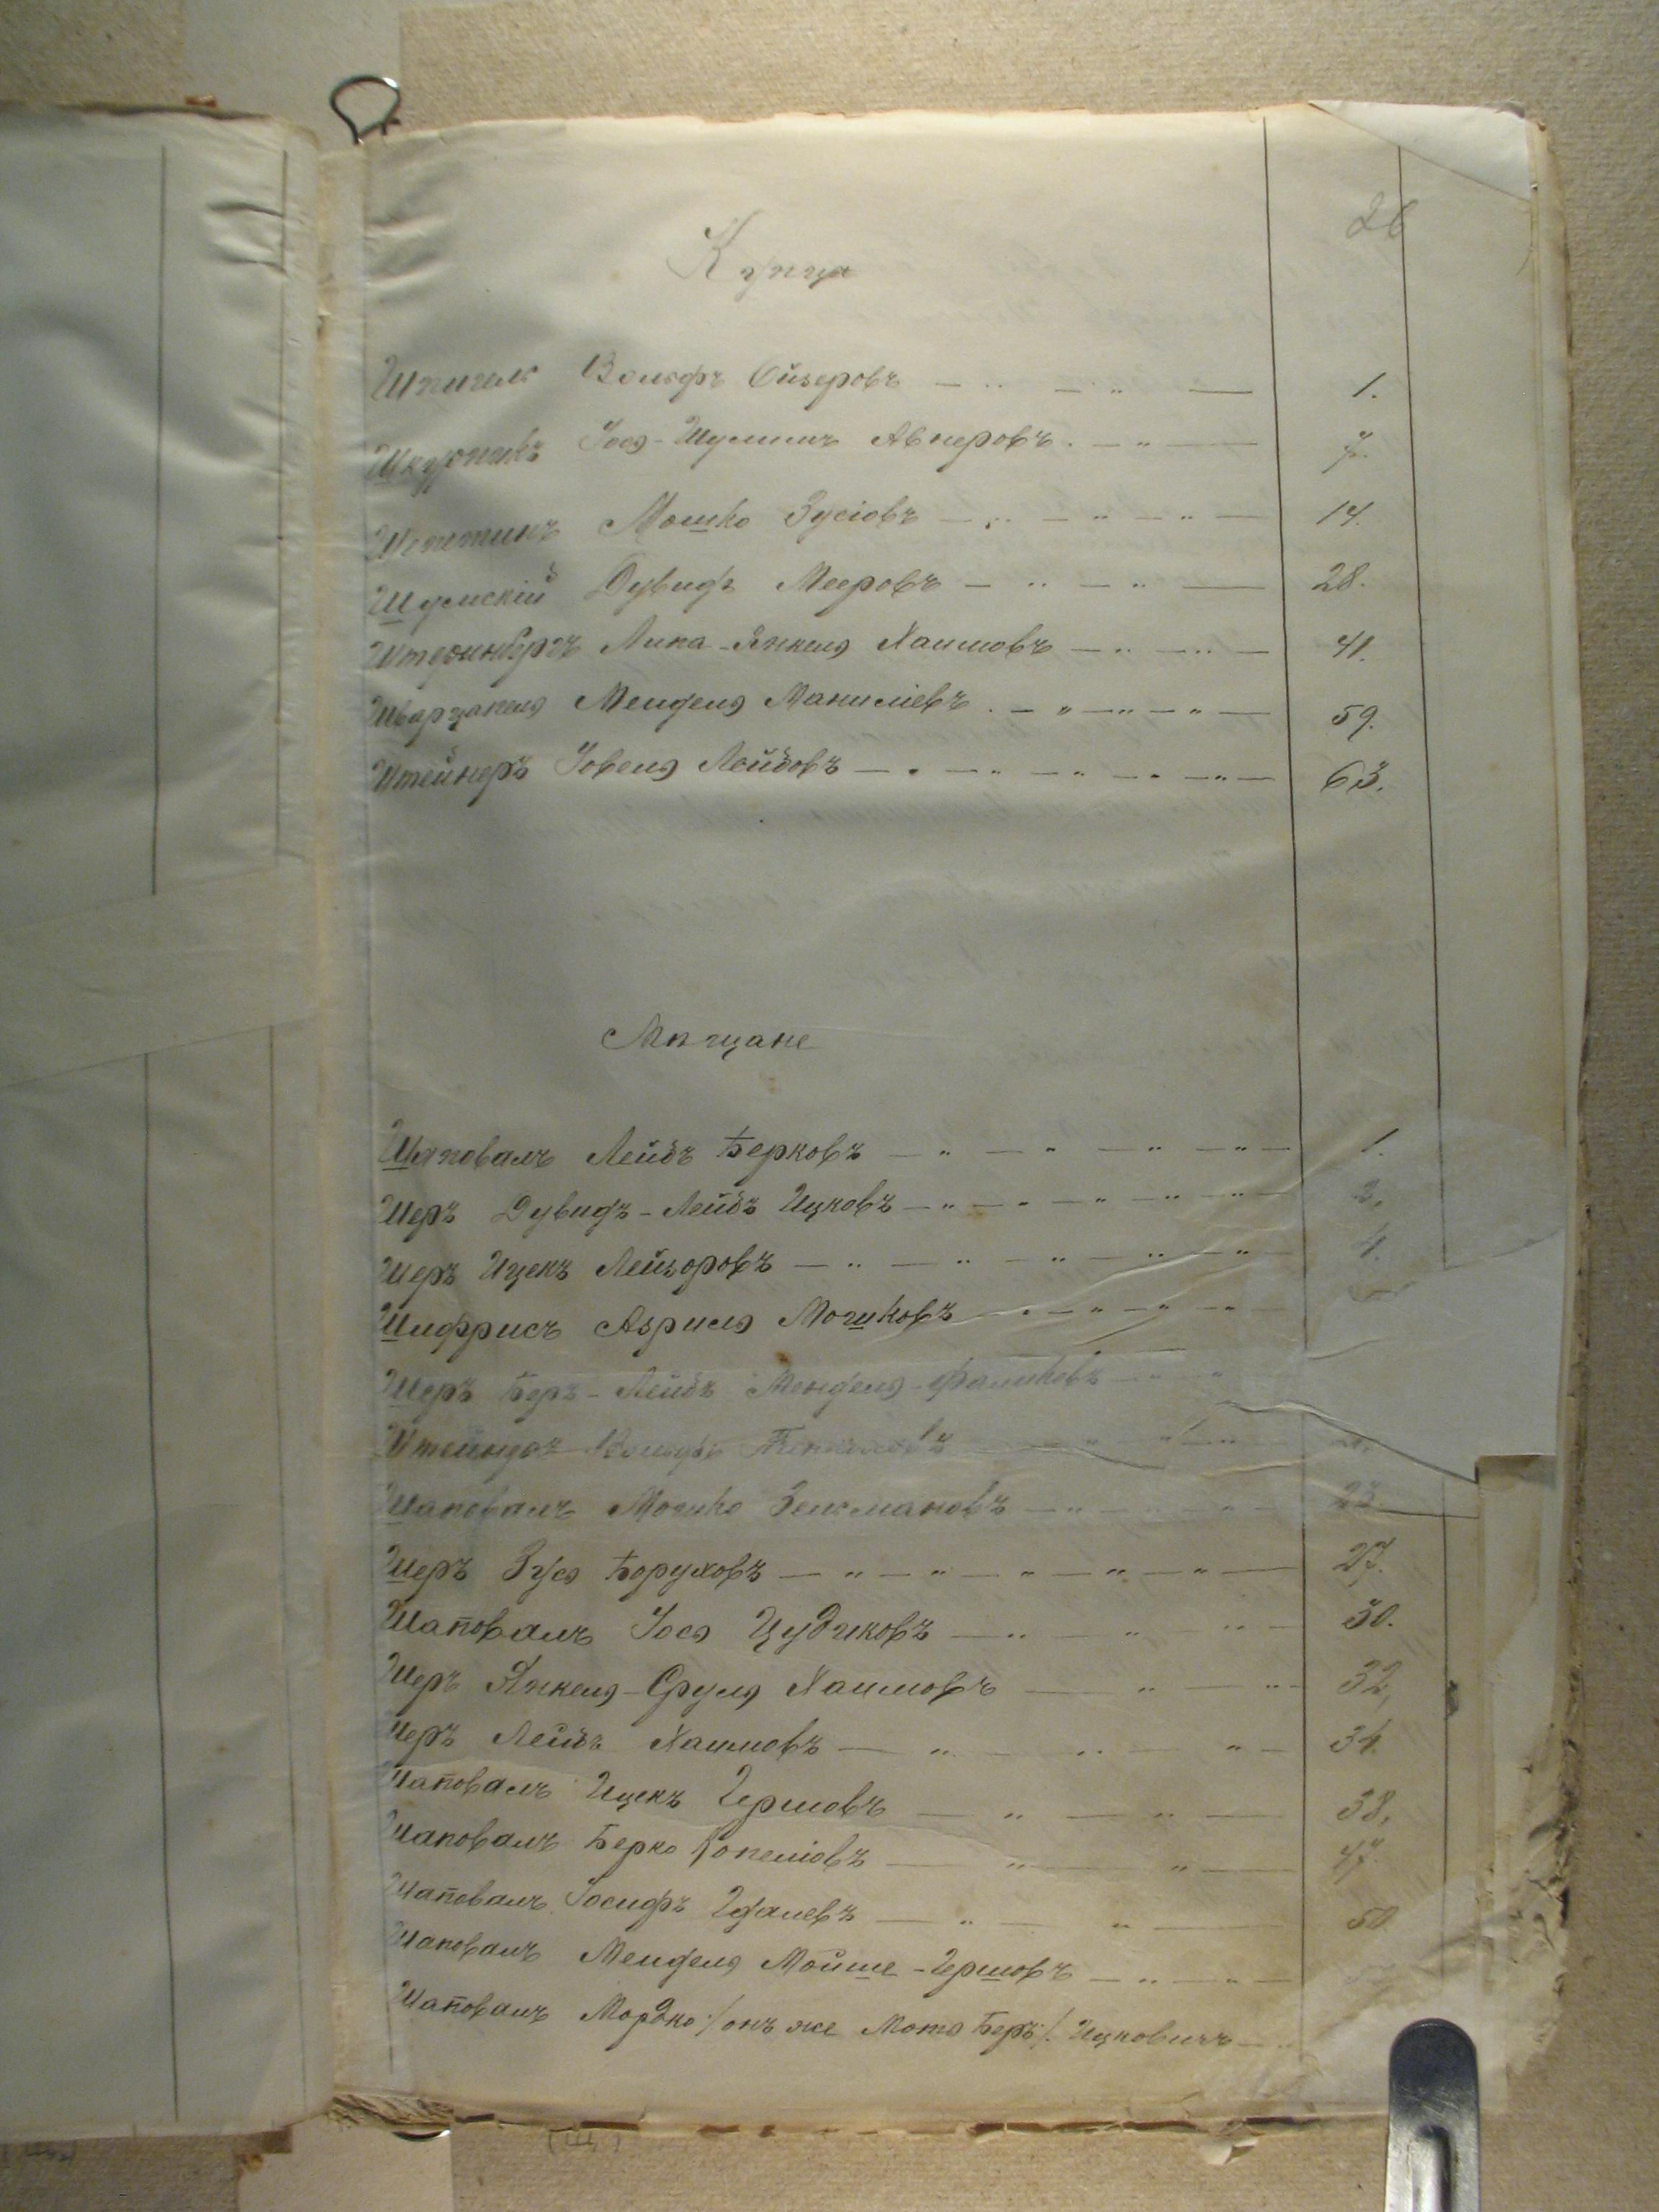 26
Купца
Шпигель Вольфъ Ойзеровъ — „ — „ — 1.
Шкурникъ Іося-Шулимъ Авнеровъ. — „ — 7.
Мошко Зусіовъ — „ — „ — „ — 14.
Шумскій Дувидъ Мееровъ — „ — „ — 28.
Штернбергъ Липа-Янкель Хаимовъ — „ — „ — 41.
Шварцапель Мендель Манилісвъ. — „ — „ — „ — 59.
Штейнеръ Іовель Лейбовъ — „ — „ — „ — „ — „ — 63.
Мѣщане
Шаповалъ Лейбъ Берковъ — „ — „ — „ — „ — 1.
Шеръ Дувидъ-Лейбъ Ицковъ — „ — „ — „ — „ — „ — 2.
Шеръ Ицекъ Лейзоровъ — „ — „ — „ — „ — „ — 4.
Шифрисъ Азриль Мошковъ — „ — „ — „ — „
Шеръ Беръ-Лейбъ Мендель-Фаликовъ — „ — „
Вольфъ
Шаповалъ Мошко Зельмановъ — „ — „ — „ — 23.
Шеръ Зуся Боруховъ — „ — „ — „ — „ — „ — 27.
Шаповалъ Іося Цудиковъ — „ — „ — „ — 30.
Шеръ Янкель-Сруль Хаимовъ — „ — „ — 32.
Шеръ Лейбъ Хаимовъ — „ — „ — „ — 34.
Шаповалъ Ицекъ Гершовъ — „ — „ — 38.
Шаповалъ Берко Копеліовъ — „ — „ — 47.
Шаповалъ Іосифъ Гдалевъ — „ — „ — 50
Шаповалъ Мендель Мойше-Гершовъ — „ — „ —
Шаповалъ Мордко /онъ же Мотя Беръ/. Ицковичъ —